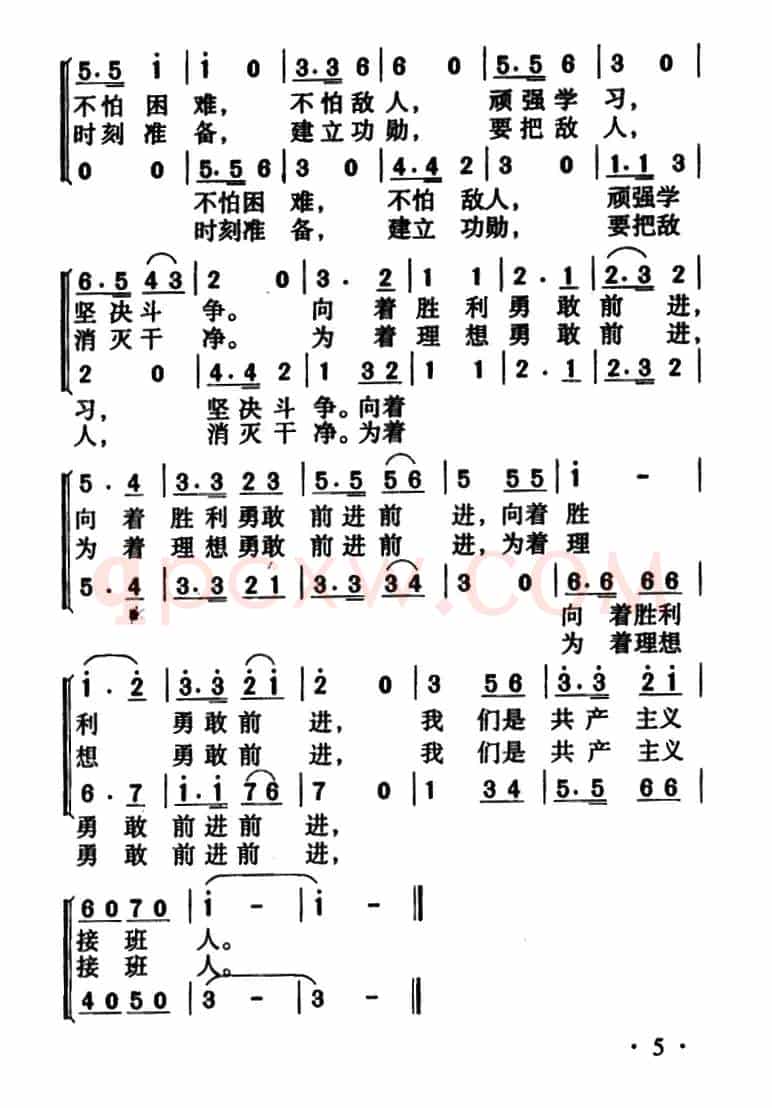 5·5 i | i 0 | 3·3 6 | 6 0 | 5·5 6 | 3 0 |
不怕困 难， 不怕敌 人， 顽强学 习，
时刻准 备， 建立功 勋， 要把敌 人，
0 0 | 5·5 6 | 3 0 | 4·4 2 | 3 0 | 1·1 3 |
不怕困 难， 不怕 敌人， 顽强学
时刻准 备， 建立 功勋， 要把敌
6·5 43 | 2 0 | 3· 2 | 1 1 | 2·1 | 2·3 2 |
坚决斗 争。 向 着 胜 利 勇 敢 前 进，
消灭干 净。 为 着 理 想 勇 敢 前 进，
2 0 | 4·4 2 | 1 32 | 1 1 | 2·1 | 2·3 2 |
习， 坚决斗 争。向着
人， 消灭干 净。为着
5·4 | 3·3 23 | 5·5 56 | 5 55 | i - |
向 着 胜利勇敢 前进前 进，向着 胜
为 着 理想勇敢 前进前 进，为着 理
5·4 | 3·3 21 | 3·3 34 | 3 0 | 6·6 66 |
qpcxw.COM
向 着胜利
为 着理想
i·2̇ | 3̇·3̇ 2̇i | 2̇ 0 | 3 56 | 3̇·3̇ 2̇i |
利 勇敢前 进， 我 们是 共产 主义
想 勇敢前 进， 我 们是 共产 主义
6·7 | i·i 76 | 7 0 | 1 34 | 5·5 66 |
勇 敢 前进前 进，
勇 敢 前进前 进，
6070 | i - | i - ‖
接 班 人。
接 班 人。
4050 | 3 - | 3 - ‖
·5·